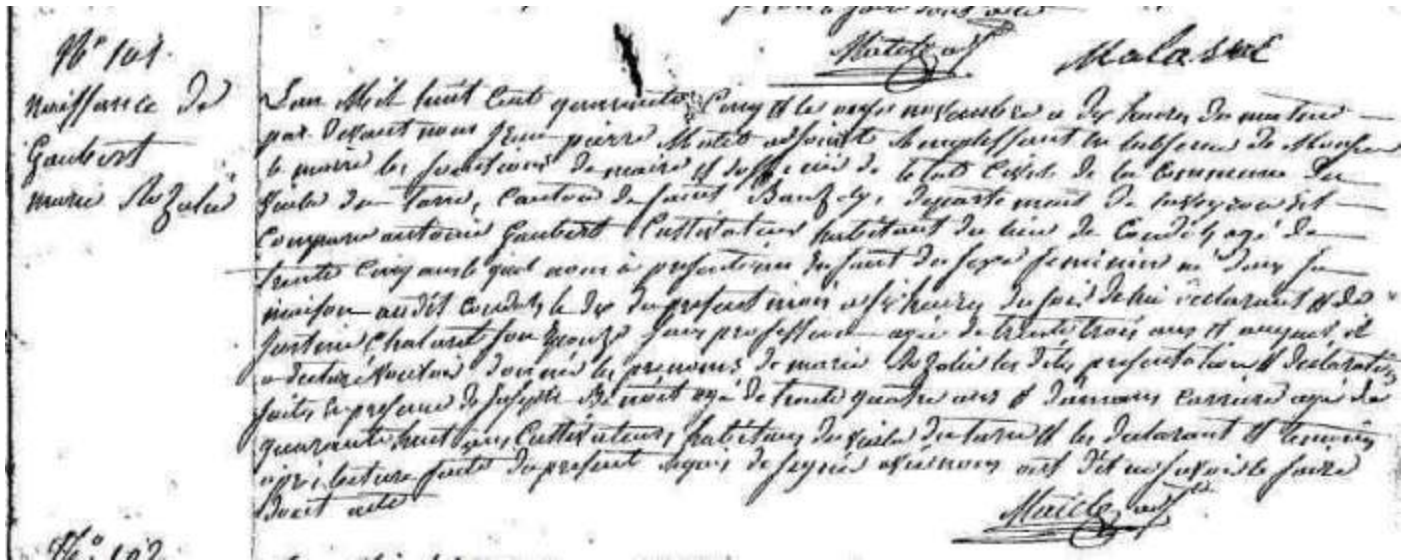 Malaral
N° 101.
naissance de
Gaubert
marie Rozalie
L'an Mil huit Cent quarante Cinq et le onze novembre a dix heures du matin
par devant nous Jean pierre adjoint Remplissant en labsence de Monsieur
le maire les fonctions de maire et dofficié de letat Civil de la Commune du
Viala du Tarn, Canton de saint Bauzely, departement de laveyron est
Comparu antoine Gaubert Cultivateur habitant du lieu de Coudols agé de
trente Cinq ans le quel nous a presenté un Enfant du sexe feminin né dans sa
maison audit Coudols le dix du present mois a six heures du soir de lui declarant et de
Justine Chaliret son Epouze sans profession agée de trente trois ans et auquel il
a declaré Vouloir donné les prenoms de marie Rozalie les dites presentation et declaration
faites en presence de Joseph Benoit agé de trente quatre ans et Carriere agé de
quarante huit ans, Cultivateurs, habitans du Viala du tarn et les declarant et temoins
après lecture faite du present requis de signer avec nous ont dit ne savoir le faire
dont acte
N° 102